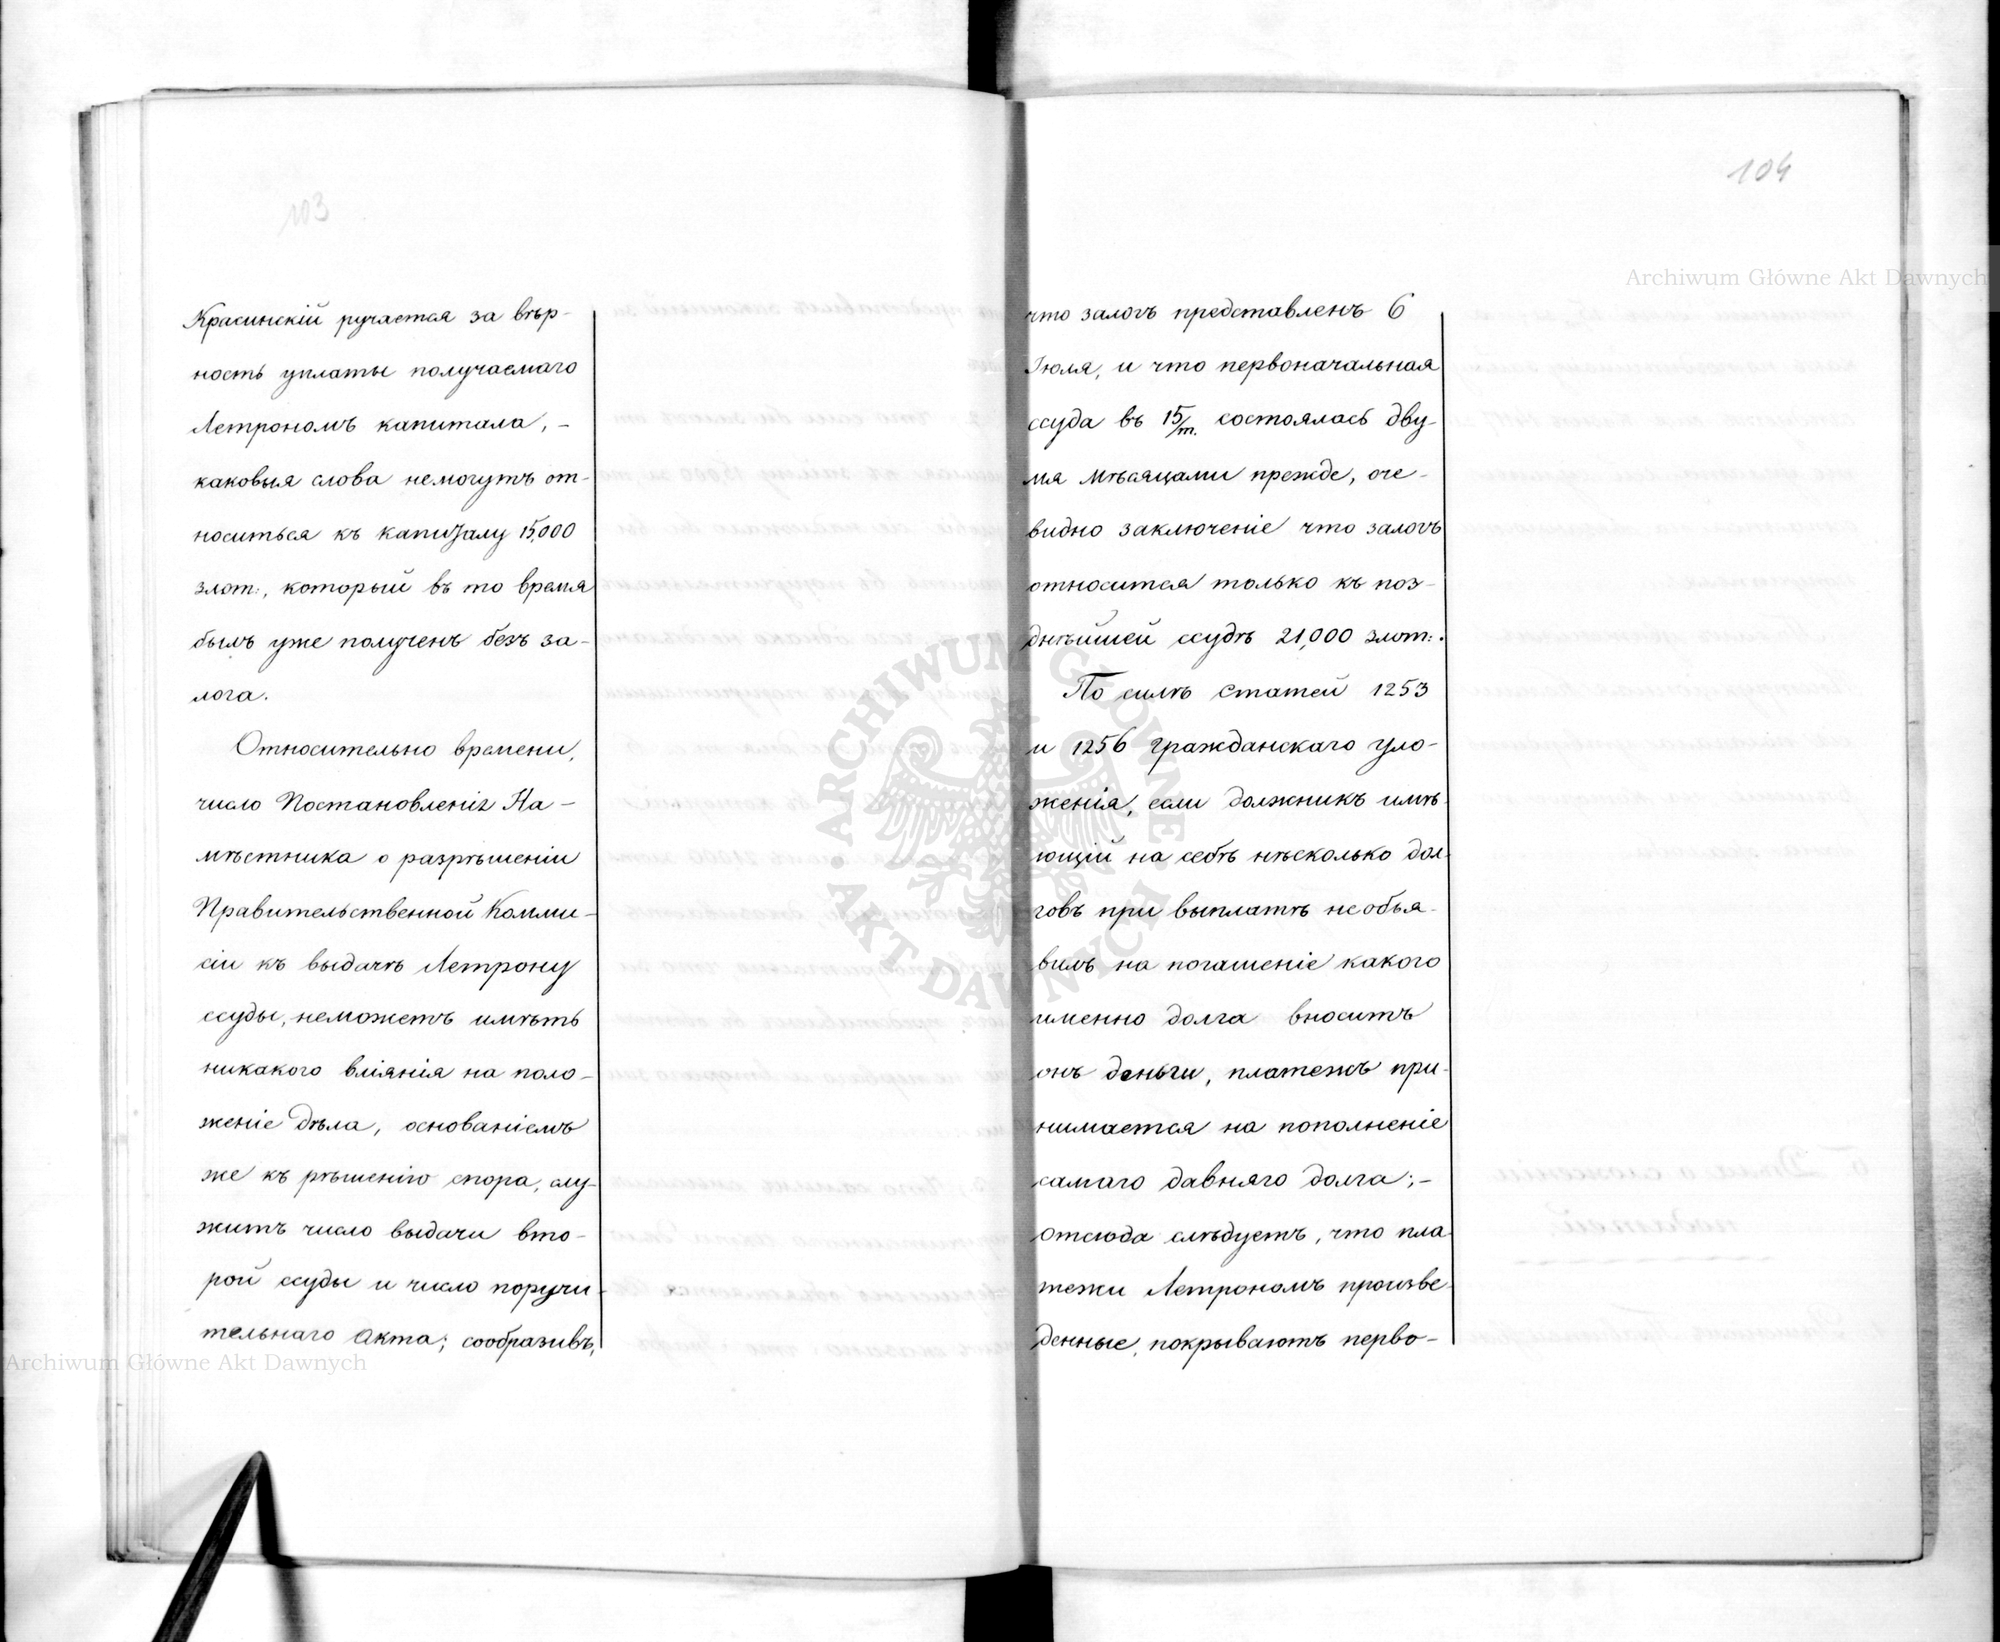 103
Красинскій ручается за вѣр-
ность уплаты получаемаго
Летрономъ капитала, -
каковыя слова немогутъ от-
носиться къ капиталу 15,000
злот:, который въ то время
былъ уже полученъ безъ за-
лога.
Относительно времени,
число Постановленія На-
мѣстника о разрѣшеніи
Правительственной Комми-
сіи къ выдачѣ Летрону
ссуды, неможетъ имѣть
никакого вліянія на поло-
женіе дѣла, основаніемъ
же къ рѣшенію спора, слу-
житъ число выдачи вто-
рой ссуды и число поручи-
тельнаго Акта; сообразивъ,
104
что залогъ представленъ 6
Іюля, и что первоначальная
ссуда въ 15/m. состоялась дву-
мя мѣсяцами прежде, оче-
видно заключеніе что залогъ
относится только къ поз-
днѣйшей ссудѣ 21,000 злот:.
По силѣ Статей 1253
и 1256 Гражданскаго уло-
женія, если должникъ имѣ-
ющій на себѣ нѣсколько дол-
говъ при выплатѣ необъя-
вилъ на погашеніе какого
именно долга вноситъ
онъ деньги, платежъ при-
нимается на пополненіе
самаго давняго долга; -
отсюда слѣдуетъ, что пла
тежи Летрономъ произве-
денные, покрываютъ перво-
Archiwum Główne Akt Dawnych
Archiwum Główne Akt Dawnych
ARCHIWUM GŁÓWNE AKT DAWNYCH